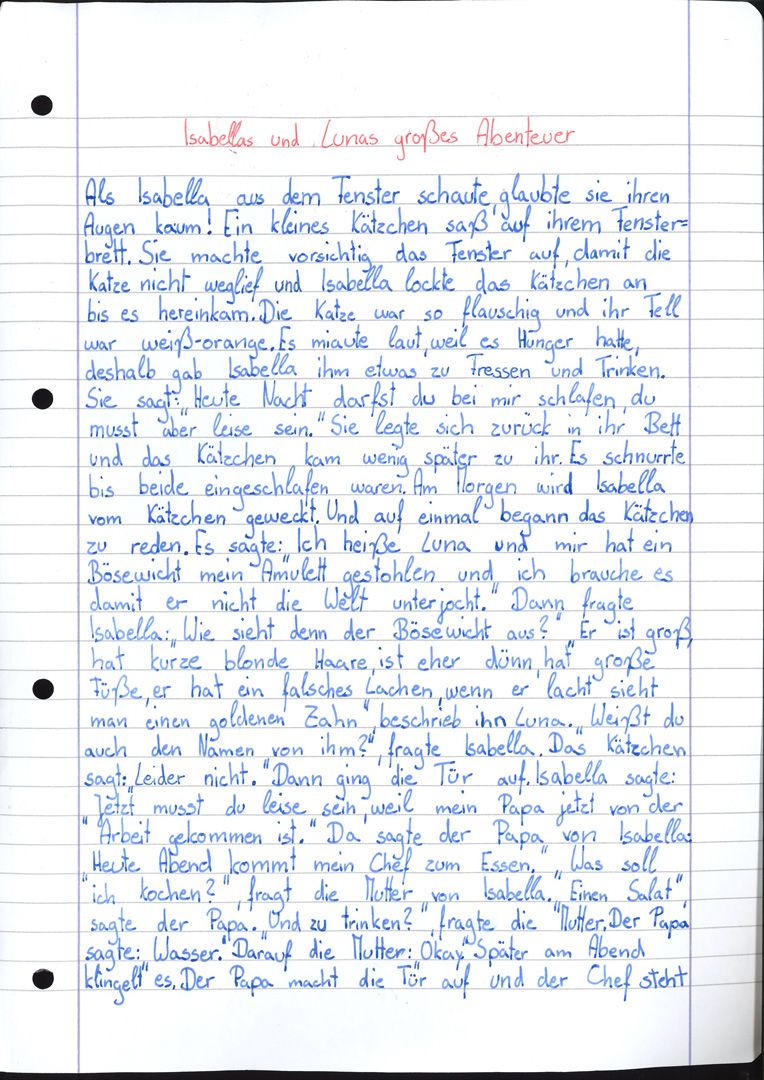 Isabellas und Lunas großes Abenteuer
Als Isabella aus dem Fenster schaute, glaubte sie ihren
Augen kaum! Ein kleines Kätzchen saß auf ihrem Fenster=
brett. Sie machte vorsichtig das Fenster auf, damit die
Katze nicht weglief und Isabella lockte das Kätzchen an
bis es hereinkam. Die Katze war so flauschig und ihr Fell
war weiß-orange. Es miaute laut, weil es Hunger hatte,
deshalb gab Isabella ihm etwas zu Fressen und Trinken.
Sie sagt: "Heute Nacht darfst du bei mir schlafen, du
musst aber leise sein." Sie legte sich zurück in ihr Bett
und das Kätzchen kam wenig später zu ihr. Es schnurrte
bis beide eingeschlafen waren. Am Morgen wird Isabella
vom Kätzchen geweckt. Und auf einmal begann das Kätzchen
zu reden. Es sagte: "Ich heiße Luna und mir hat ein
Bösewicht mein Amulett gestohlen und ich brauche es
damit er nicht die Welt unterjocht." Dann fragte
Isabella: "Wie sieht denn der Bösewicht aus?" "Er ist groß,
hat kurze blonde Haare, ist eher dünn, hat große
Füße, er hat ein falsches Lachen, wenn er lacht sieht
man einen goldenen Zahn", beschrieb ihn Luna. "Weißt du
auch den Namen von ihm?", fragte Isabella. Das Kätzchen
sagt: "Leider nicht." Dann ging die Tür auf. Isabella sagte:
"Jetzt musst du leise sein, weil mein Papa jetzt von der
Arbeit gekommen ist." Da sagte der Papa von Isabella:
"Heute Abend kommt mein Chef zum Essen." "Was soll
ich kochen?", fragt die Mutter von Isabella. "Einen Salat",
sagte der Papa. "Und zu trinken?", fragte die Mutter. Der Papa
sagte: "Wasser." Darauf die Mutter: "Okay." Später am Abend
klingelt es. Der Papa macht die Tür auf und der Chef steht